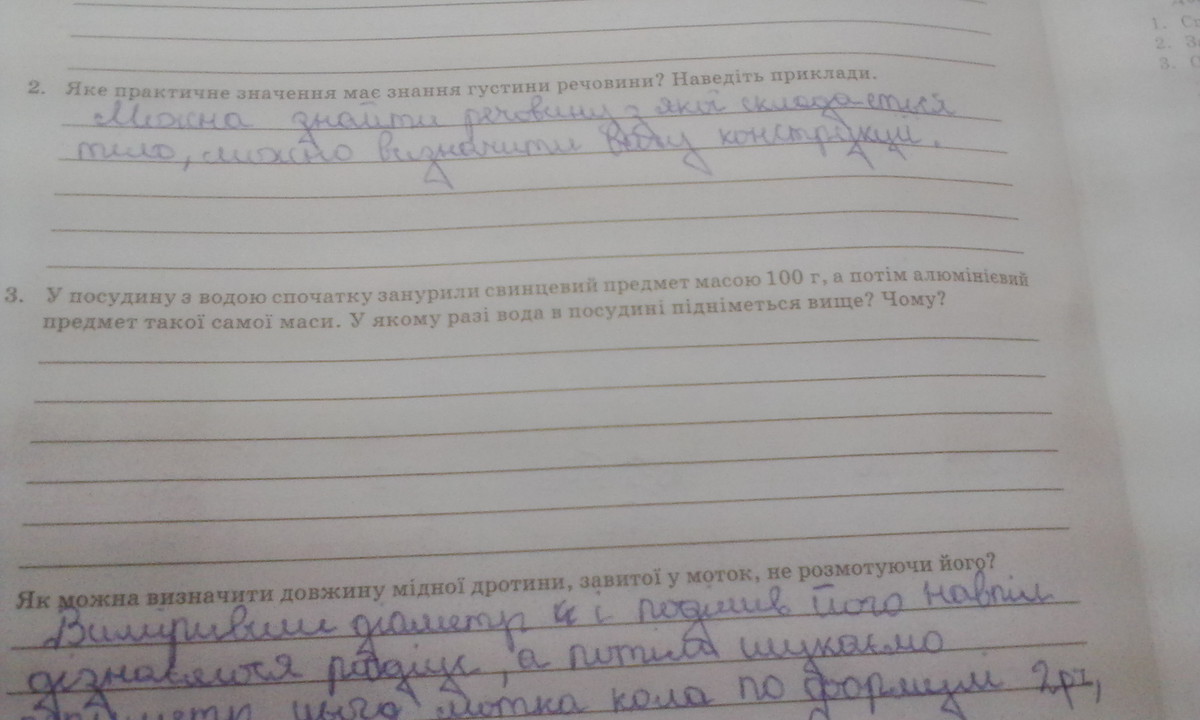 1. С
2. З
3. О
2. Яке практичне значення має знання густини речовини? Наведіть приклади.
Можна знайти речовину з якої складається
тило, можно визначити вагу конструкцій.
3. У посудину з водою спочатку занурили свинцевий предмет масою 100 г, а потім алюмінієвий
предмет такої самої маси. У якому разі вода в посудині підніметься вище? Чому?
Як можна визначити довжину мідної дротини, завитої у моток, не розмотуючи його?
Виміривши діаметр і поділив його навпіл
дізнаємся радіус, а потім шукаємо
цього мотка кола по формулі